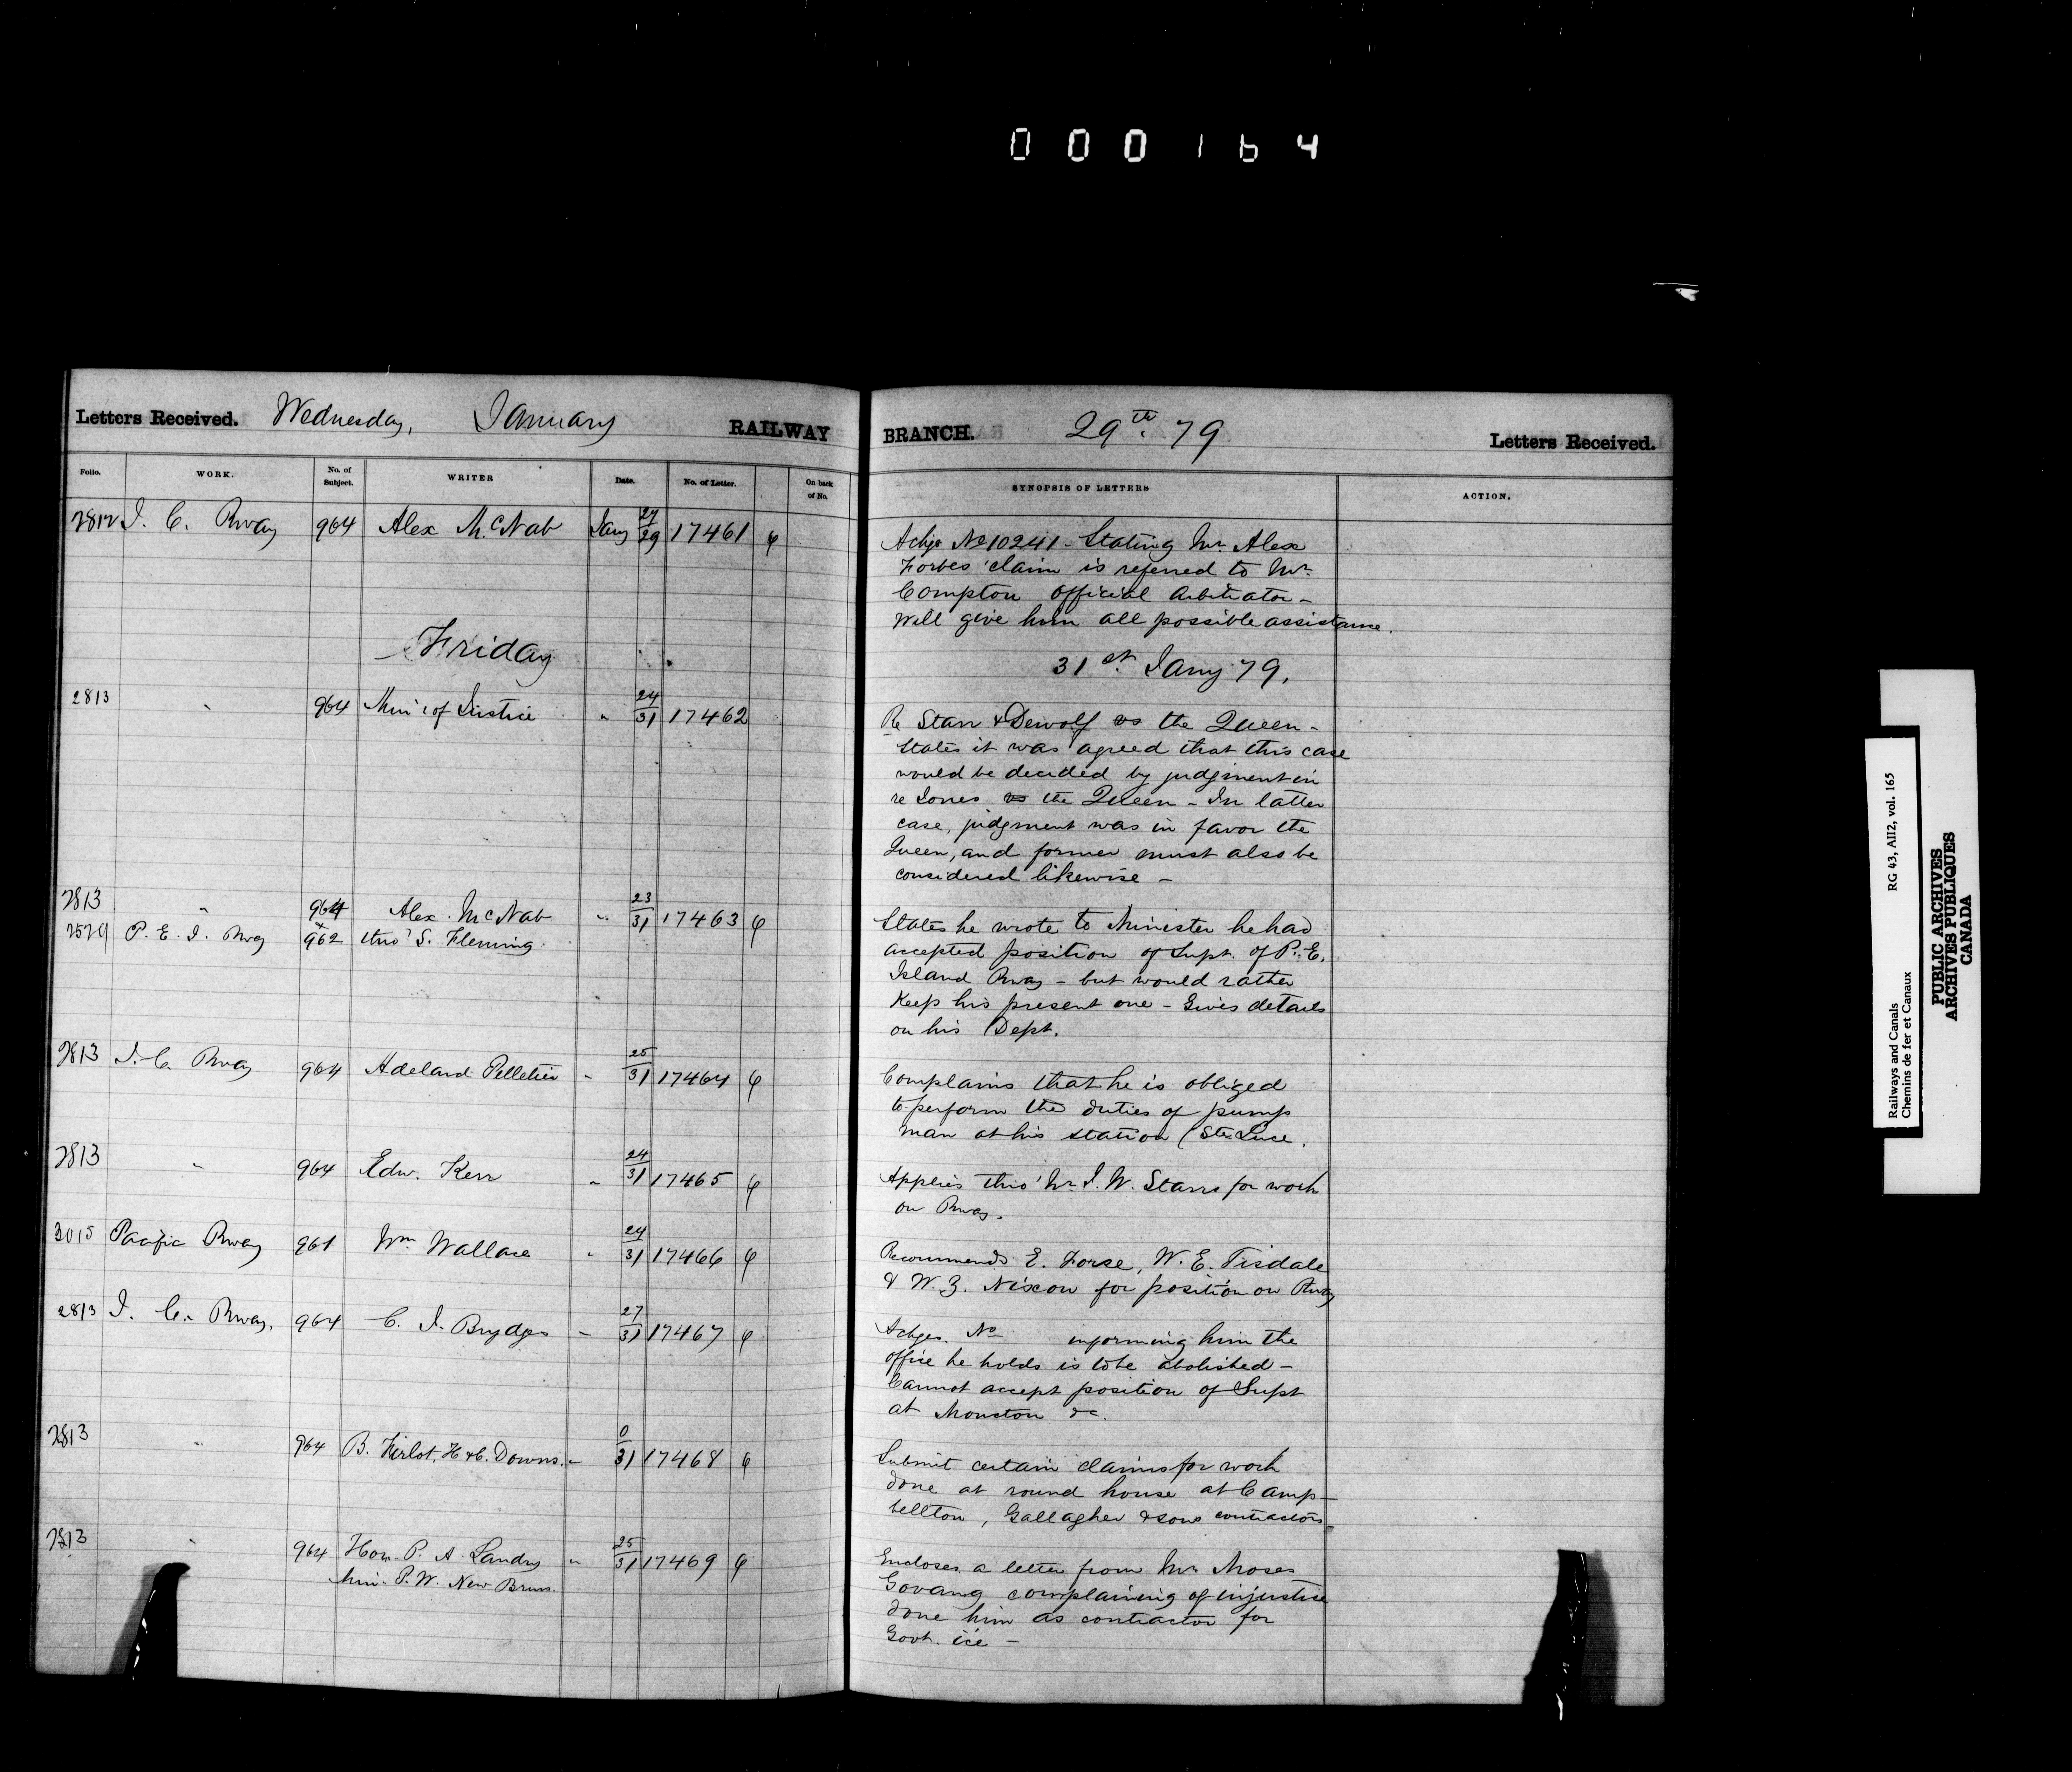 000164
Letters Received. Wednesday, January RAILWAY BRANCH. 29th. 79 Letters Received.
Folio. WORK. No. of Subject. WRITER Date. No. of Letter. On back of No. SYNOPSIS OF LETTERS ACTION.
2812 I. C. Rway 964 Alex McNab Jany 27/29 17461
Ackge No 10241 - Stating Mr. Alex
Forbes' claim is referred to Mr.
Compton official Arbitrator -
Will give him all possible assistance.
Friday 31st. Jany 79.
2813 " 964 Min. of Justice " 24/31 17462
Re Starr & Dewolf vs the Queen -
States it was agreed that this case
would be decided by judgment in
re Jones vs the Queen - In latter
case, judgment was in favor the
Queen, and former must also be
considered likewise -
2813 " 964 Alex. McNab " 23/31 17463
2529 P. E. I. Rway & 962 thro' S. Fleming
States he wrote to Minister he had
accepted position of Supt. of P. E.
Island Rway - but would rather
keep his present one - Gives details
on his Dept.
2813 I. C. Rway 964 Adelard Pelletier " 25/31 17464
Complains that he is obliged
to perform the duties of pump
man at his station (Ste Luce.
2813 " 964 Edw. Kerr " 24/31 17465
Applies thro' Mr. J. W. Starrs for work
on Rway.
3015 Pacific Rway 961 Wm Wallace " 24/31 17466
Recommends E. Forse, W. E. Tisdale
& W. Z. Nixcon for position on Rway
2813 I. C. Rway. 964 C. J. Brydges " 27/31 17467
Ackges. No informing him the
office he holds is to be abolished -
Cannot accept position of Supt
at Moncton &c.
2813 " 964 B. Firlot, H & C. Downs. " 0/31 17468
Submit certain claims for work
done at round house at Camp-
bellton, Gallagher & sons contractors
2813 " 964 Hon. P. A. Landry " 25/31 17469
Min. P. W. New Bruns.
Encloses a letter from Mr. Moses
Govang complaining of injustice
done him as contractor for
Govt. ice -
Railways and Canals RG 43, AII2, vol. 165
Chemins de fer et Canaux
PUBLIC ARCHIVES
ARCHIVES PUBLIQUES
CANADA